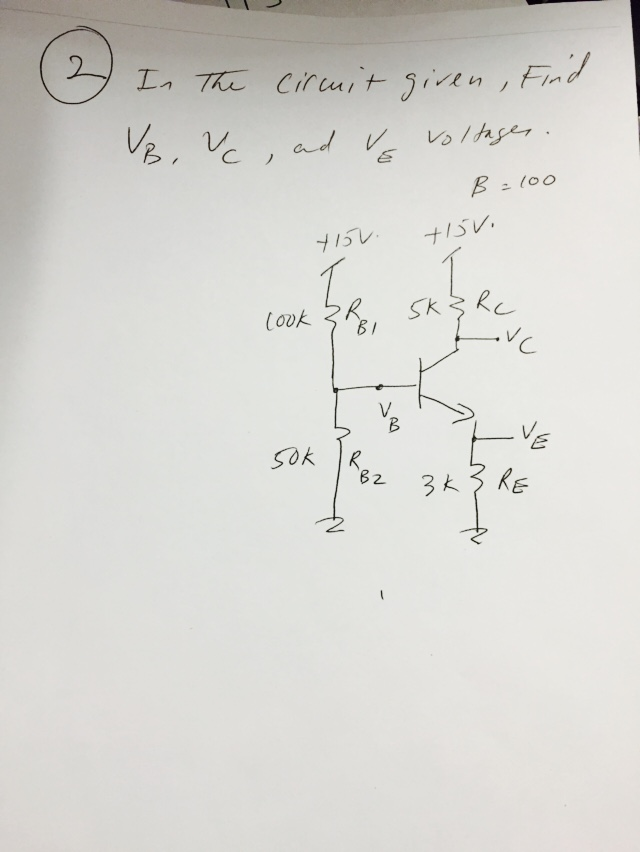 2 In The circuit given, Find
VB, VC, and VE voltages.
B = 100
+15V. +15V.
100K RB1 5K RC
VC
VB
VE
50K RB2 3K RE